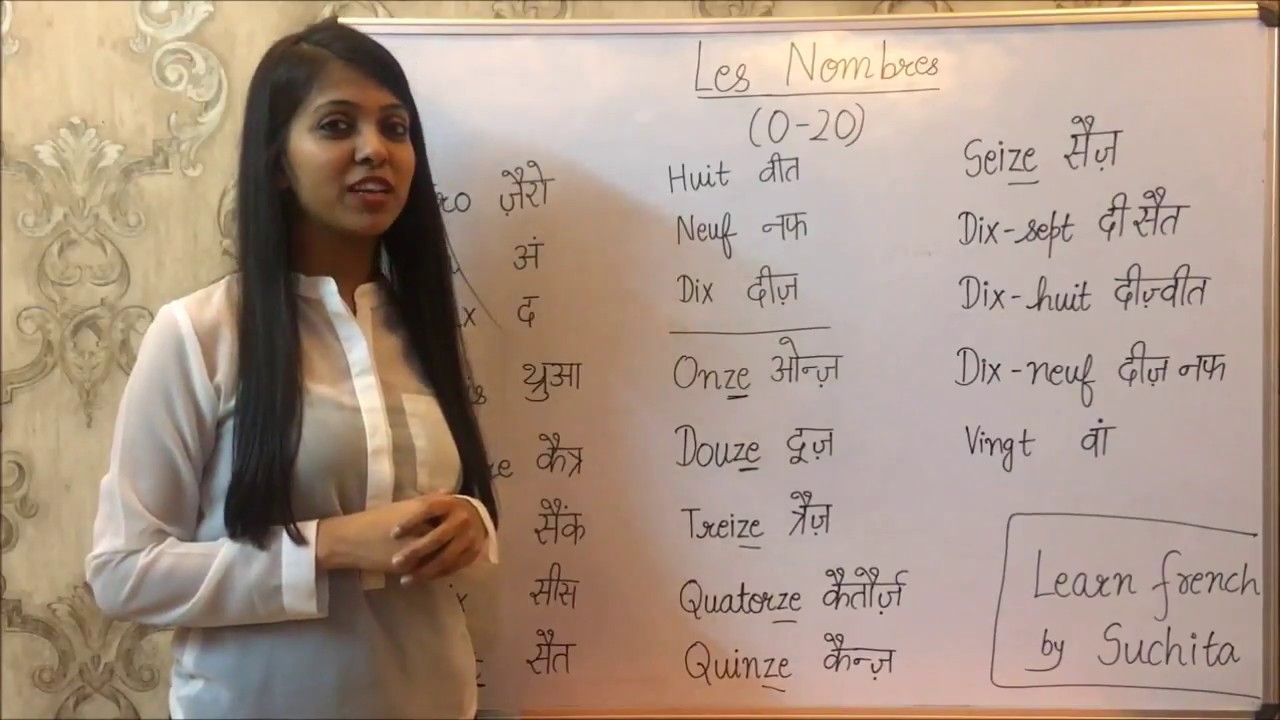 Les Nombres
(0-20)
ज़ैरो
अं
द
थ्रुआ
कैत्र
सैंक
सीस
सैत
Huit वीत
Neuf नफ
Dix दीज़
Onze ओन्ज़
Douze दूज़
Treize त्रैज़
Quatorze कैतौर्ज़
Quinze कैन्ज़
Seize सैज़
Dix-sept दी सैत
Dix-huit दीज़्वीत
Dix-neuf दीज़ नफ
Vingt वां
Learn french
by Suchita